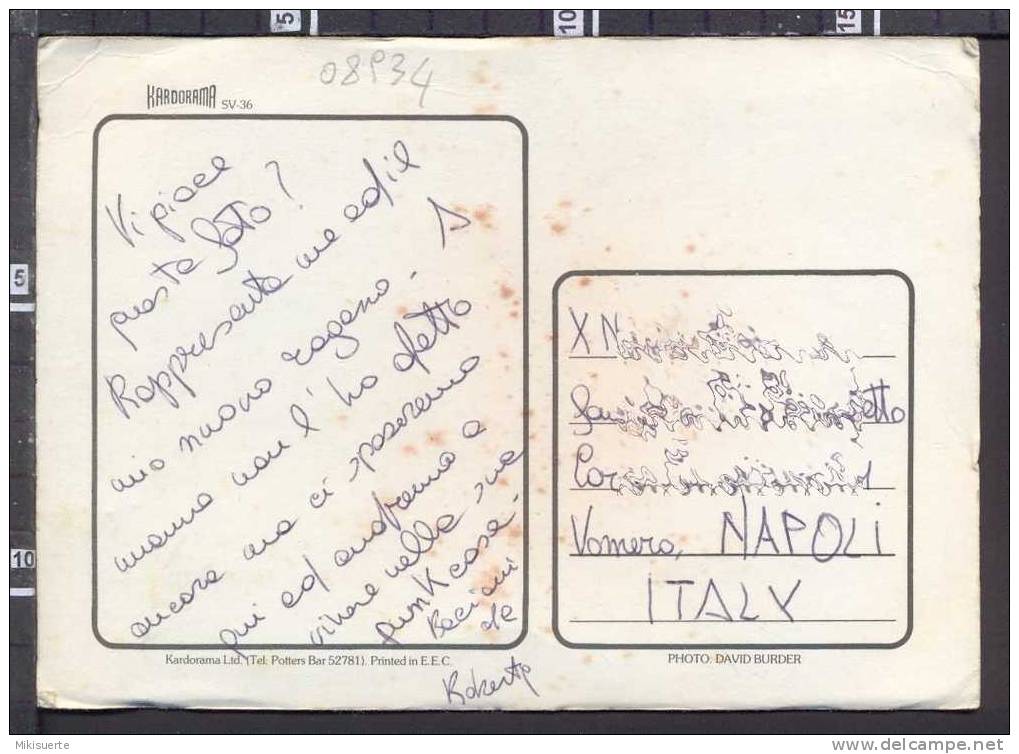 5
10
15
5
10
08934
KARDORAMA SV-36
Vi piace
questa foto?
Rappresenta me ed il
mio nuovo ragazzo. A
mamma non l'ho detto
ancora ma ci sposeremo
qui ed andremo a
vivere nella sua
punk casa.
Bacioni
de
X N
etto
Cor 1
Vomero, NAPOLI
ITALY
Kardorama Ltd. (Tel: Potters Bar 52781). Printed in E.E.C.
PHOTO: DAVID BURDER
Mikisuerte
www.delcampe.net